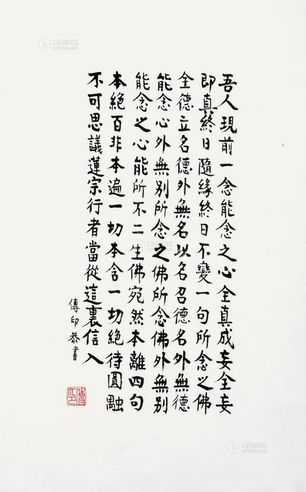 吾人現前一念能念之心全真成妄全妄
即真終日隨緣終日不變一句所念之佛
全德立名德外無名以名召德名外無德
能念心外無別所念之佛所念佛外無別
能念之心能所不二生佛宛然本離四句
本絕百非本遍一切本含一切絕待圓融
不可思議蓮宗行者當從這裏信入
傳印恭書